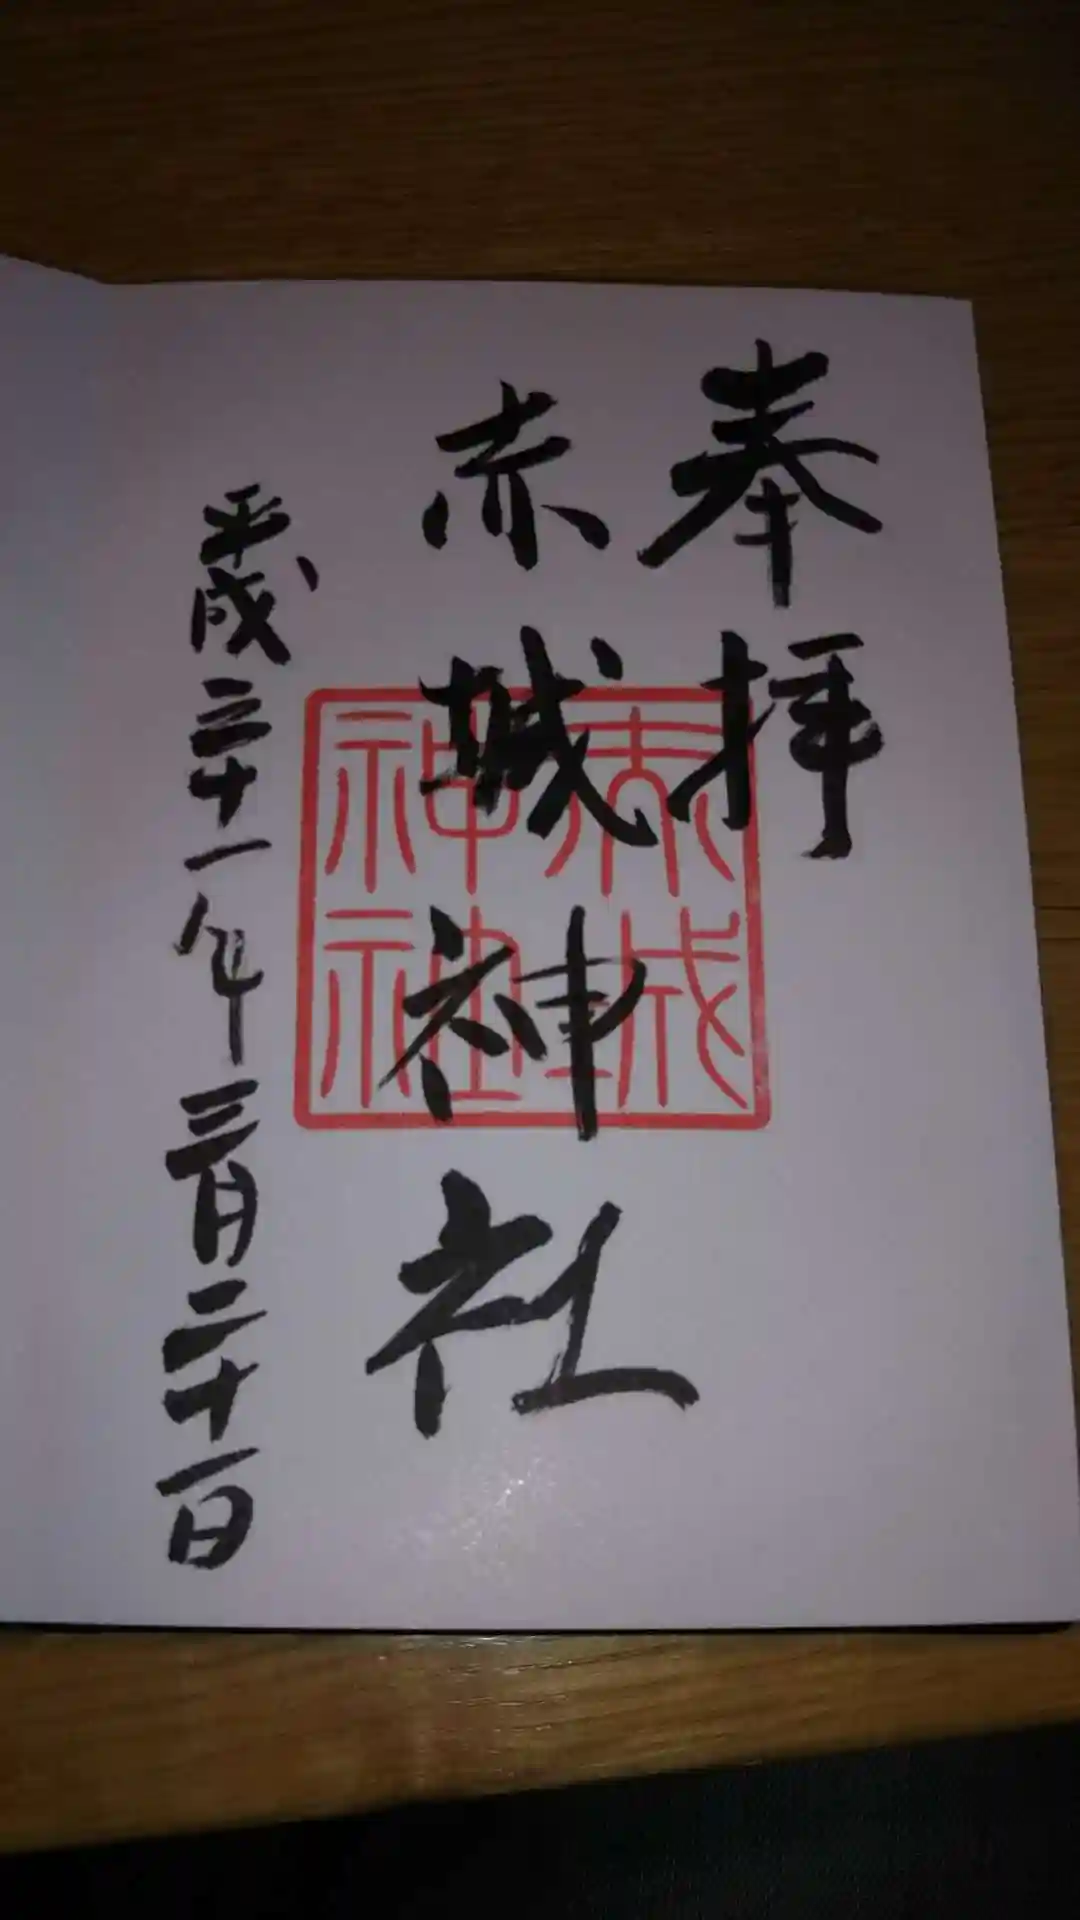 奉拝
赤城神社
平成三十一年三月二十一日
赤城神社